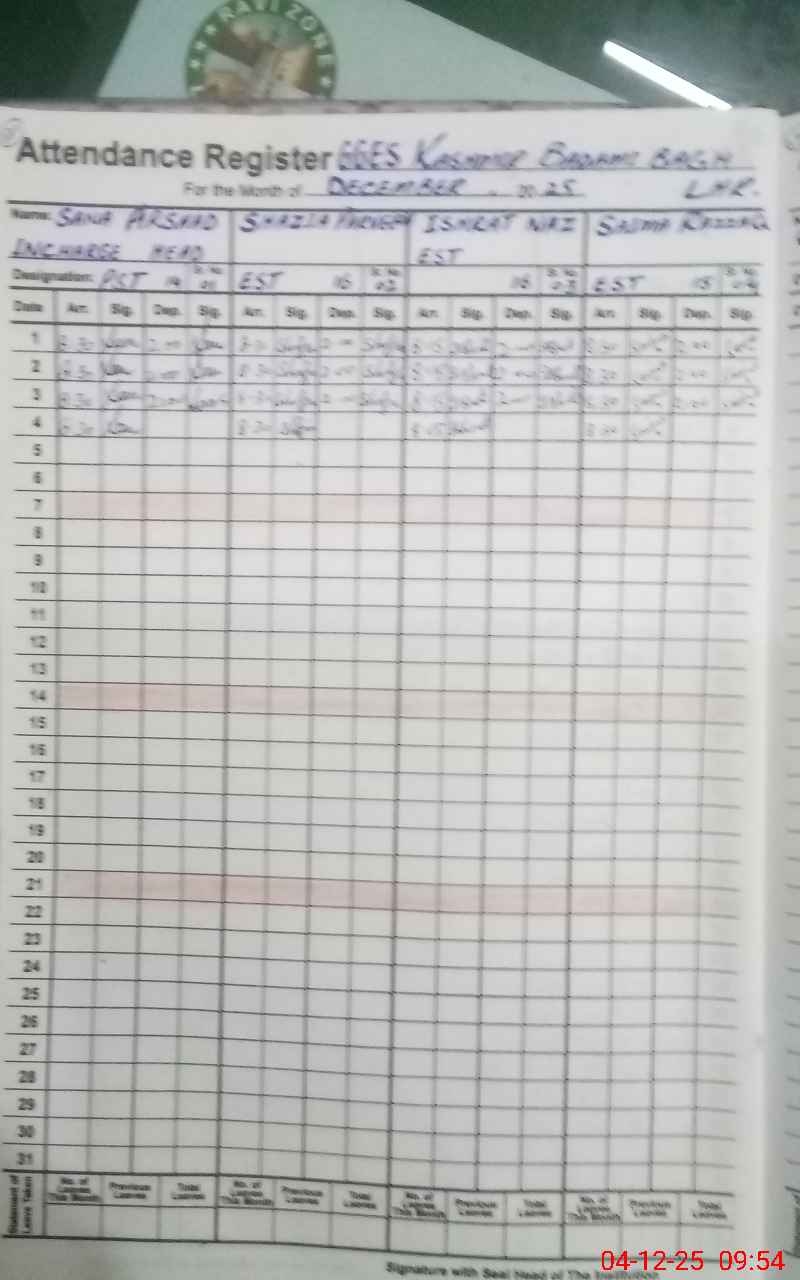 RAVI ZONE
Attendance Register GGES KASHMIR BADAMI BAGH
For the Month of DECEMBER 2025 LHR.
Name: SANA ARSHAD SHAZIA PARVEEN ISHRAT NAZ SAIMA RAZZAQ
INCHARGE HEAD EST
Designation: PST 14 Sr. No. 01 EST 16 Sr. No. 02 16 Sr. No. 03 EST 15 Sr. No. 04
Date Arr. Sig. Dep. Sig. Arr. Sig. Dep. Sig. Arr. Sig. Dep. Sig. Arr. Sig. Dep. Sig.
1 8:30 2:00 8:30 2:00 8:15 2:00 8:30 2:00
2 8:30 2:00 8:30 2:00 8:15 2:00 8:30 2:00
3 8:30 2:00 8:30 2:00 8:15 2:00 8:30 2:00
4 8:30 8:30 8:15 8:30
5
6
7
8
9
10
11
12
13
14
15
16
17
18
19
20
21
22
23
24
25
26
27
28
29
30
31
Statement of Leave Taken No. of Leaves This Month Previous Leaves Total Leaves No. of Leaves This Month Previous Leaves Total Leaves No. of Leaves This Month Previous Leaves Total Leaves No. of Leaves This Month Previous Leaves Total Leaves
Signature with Seal Head of The Institution
04-12-25 09:54